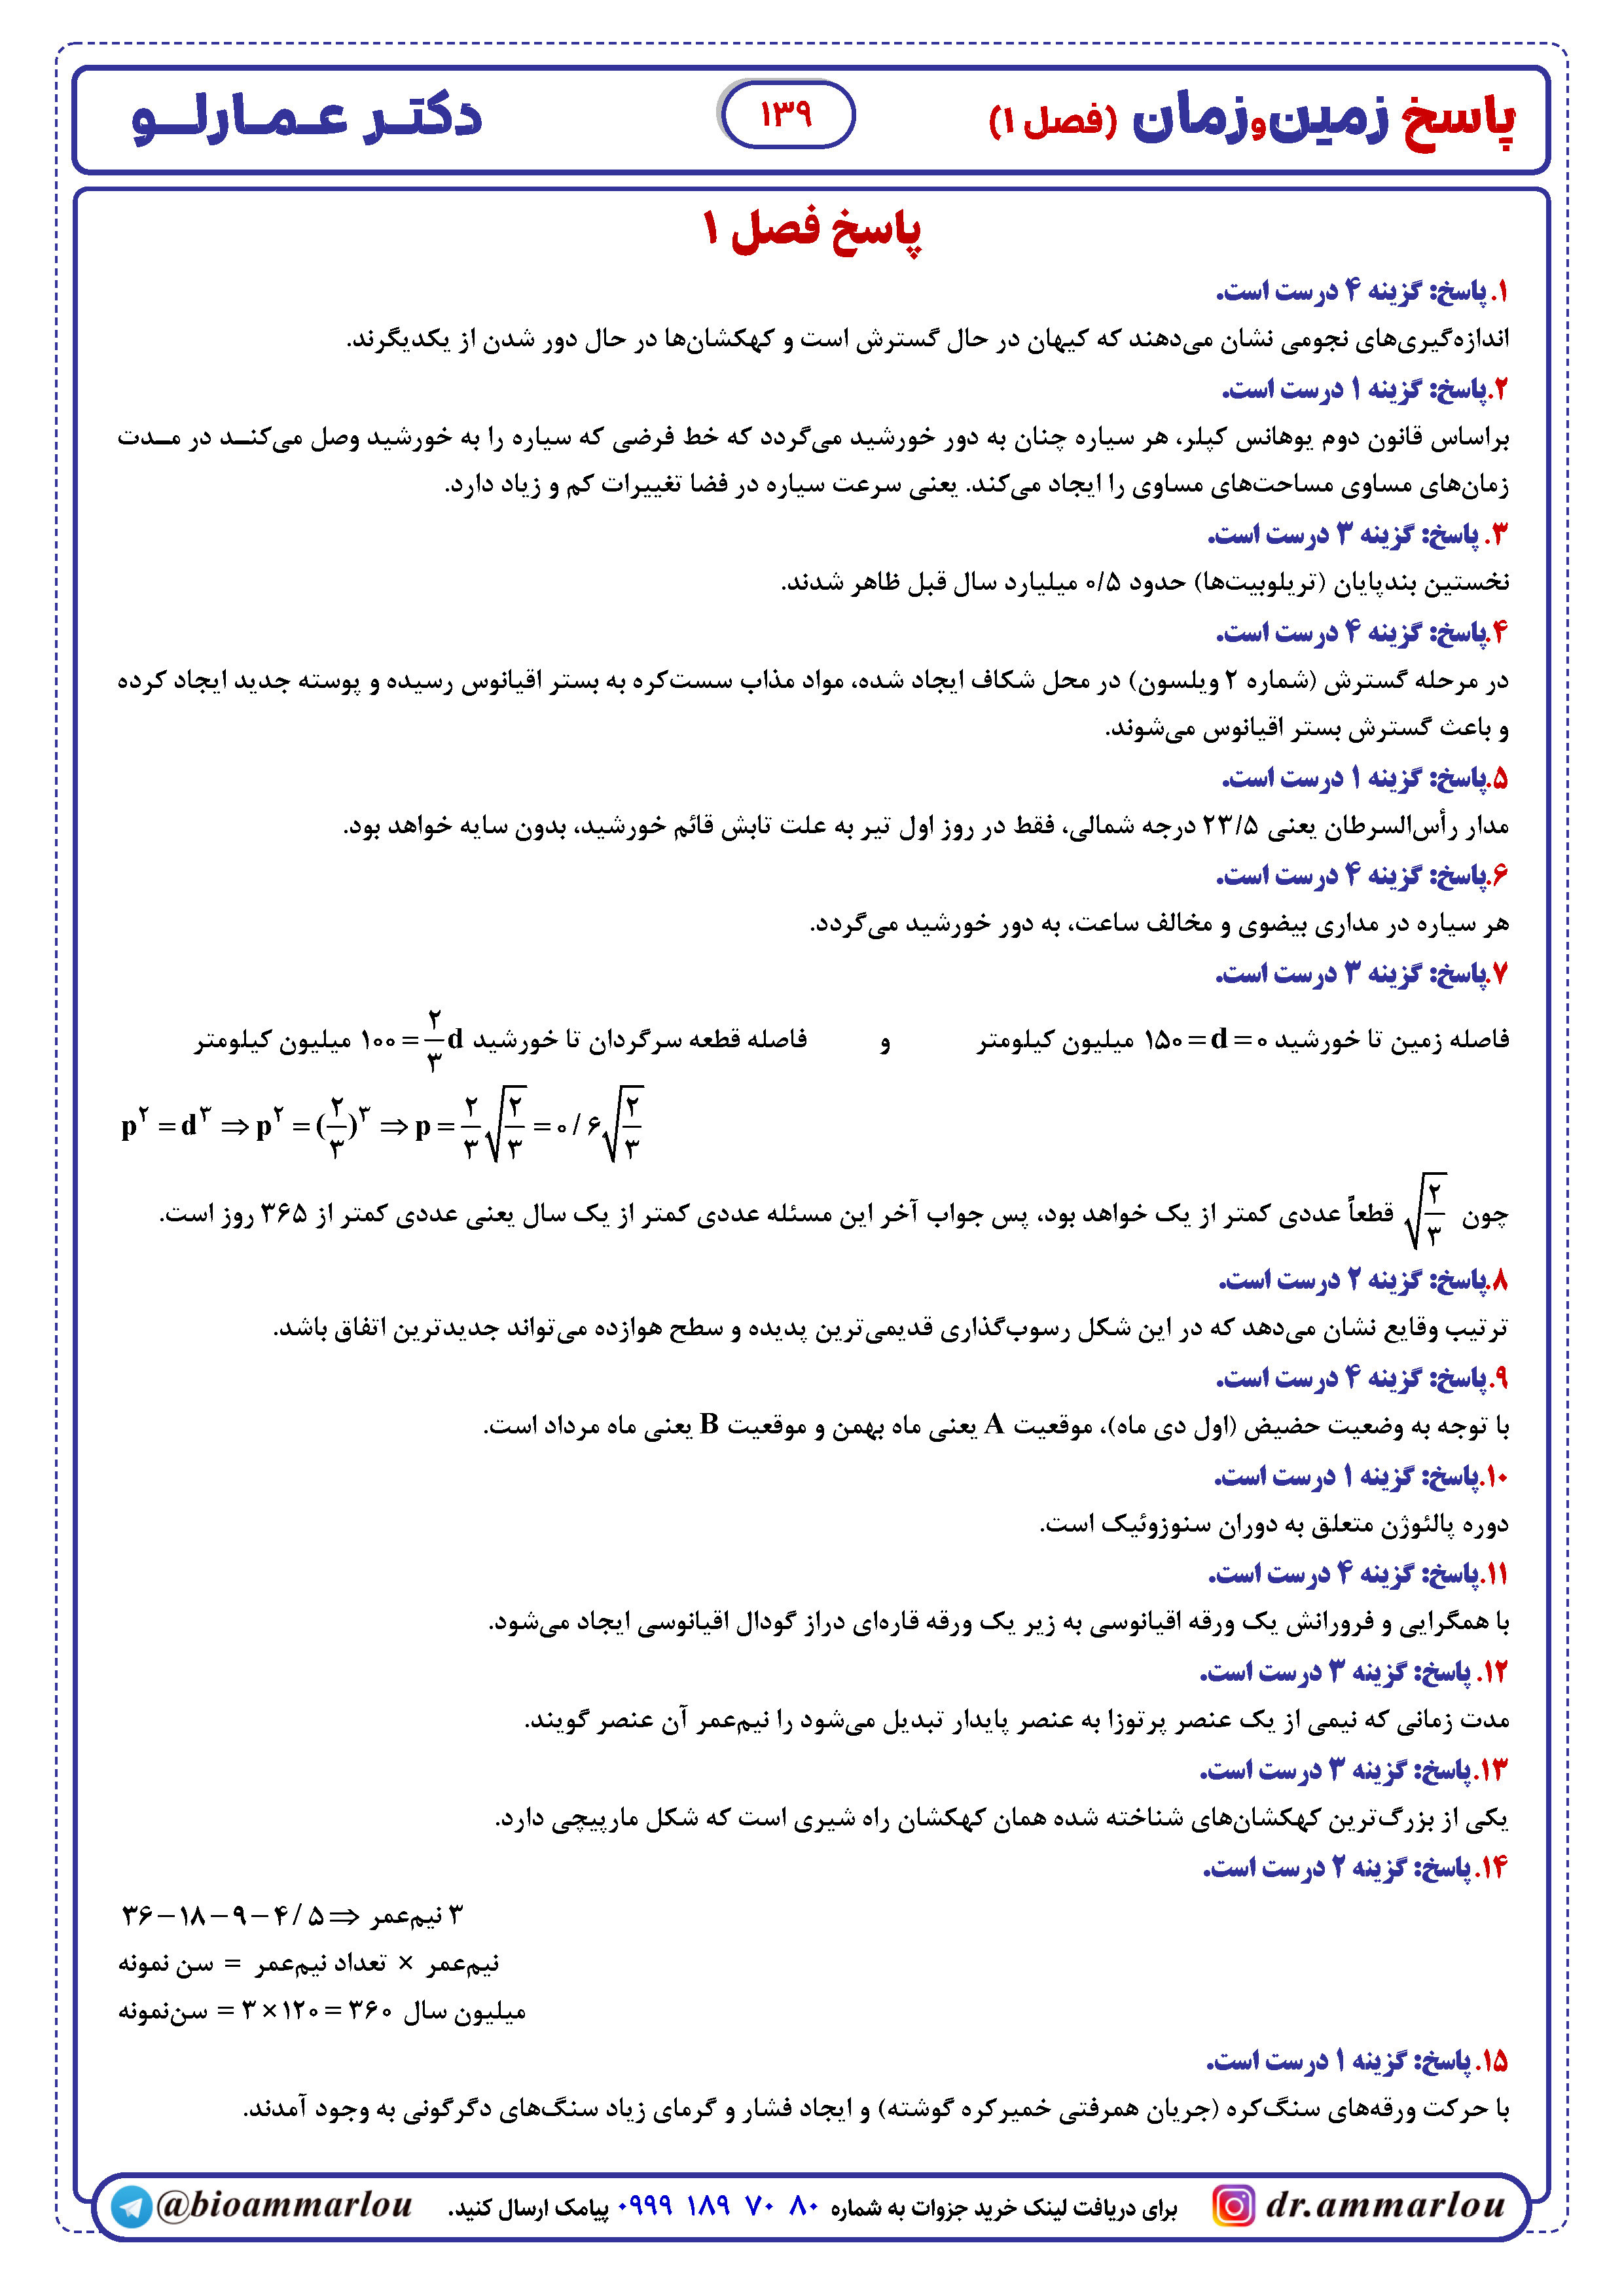 پاسخ زمین‌و‌زمان (فصل ۱)
۱۳۹
دکتـر عـمـارلـــو
پاسخ فصل ۱
۱. پاسخ: گزینه ۴ درست است.
اندازه‌گیری‌های نجومی نشان می‌دهند که کیهان در حال گسترش است و کهکشان‌ها در حال دور شدن از یکدیگرند.
۲.پاسخ: گزینه ۱ درست است.
براساس قانون دوم یوهانس کپلر، هر سیاره چنان به دور خورشید می‌گردد که خط فرضی که سیاره را به خورشید وصل می‌کنــد در مــدت
زمان‌های مساوی مساحت‌های مساوی را ایجاد می‌کند. یعنی سرعت سیاره در فضا تغییرات کم و زیاد دارد.
۳. پاسخ: گزینه ۳ درست است.
نخستین بندپایان (تریلوبیت‌ها) حدود ۰/۵ میلیارد سال قبل ظاهر شدند.
۴.پاسخ: گزینه ۴ درست است.
در مرحله گسترش (شماره ۲ ویلسون) در محل شکاف ایجاد شده، مواد مذاب سست‌کره به بستر اقیانوس رسیده و پوسته جدید ایجاد کرده
و باعث گسترش بستر اقیانوس می‌شوند.
۵.پاسخ: گزینه ۱ درست است.
مدار رأس‌السرطان یعنی ۲۳/۵ درجه شمالی، فقط در روز اول تیر به علت تابش قائم خورشید، بدون سایه خواهد بود.
۶.پاسخ: گزینه ۴ درست است.
هر سیاره در مداری بیضوی و مخالف ساعت، به دور خورشید می‌گردد.
۷.پاسخ: گزینه ۳ درست است.
فاصله زمین تا خورشید ۱۵۰ = d = ۰ میلیون کیلومتر و فاصله قطعه سرگردان تا خورشید ۱۰۰ = ۲/۳ d میلیون کیلومتر
p^۲ = d^۳ ⇒ p^۲ = (۲/۳)^۳ ⇒ p = ۲/۳ √(۲/۳) = ۰/۶ √(۲/۳)
چون √(۲/۳) قطعاً عددی کمتر از یک خواهد بود، پس جواب آخر این مسئله عددی کمتر از یک سال یعنی عددی کمتر از ۳۶۵ روز است.
۸.پاسخ: گزینه ۲ درست است.
ترتیب وقایع نشان می‌دهد که در این شکل رسوب‌گذاری قدیمی‌ترین پدیده و سطح هوازده می‌تواند جدیدترین اتفاق باشد.
۹. پاسخ: گزینه ۴ درست است.
با توجه به وضعیت حضیض (اول دی ماه)، موقعیت A یعنی ماه بهمن و موقعیت B یعنی ماه مرداد است.
۱۰.پاسخ: گزینه ۱ درست است.
دوره پالئوژن متعلق به دوران سنوزوئیک است.
۱۱.پاسخ: گزینه ۴ درست است.
با همگرایی و فرورانش یک ورقه اقیانوسی به زیر یک ورقه قاره‌ای دراز گودال اقیانوسی ایجاد می‌شود.
۱۲. پاسخ: گزینه ۳ درست است.
مدت زمانی که نیمی از یک عنصر پرتوزا به عنصر پایدار تبدیل می‌شود را نیم‌عمر آن عنصر گویند.
۱۳.پاسخ: گزینه ۳ درست است.
یکی از بزرگ‌ترین کهکشان‌های شناخته شده همان کهکشان راه شیری است که شکل مارپیچی دارد.
۱۴. پاسخ: گزینه ۲ درست است.
۳۶ – ۱۸ – ۹ – ۴/۵ ⇒ ۳ نیم‌عمر
نیم‌عمر × تعداد نیم‌عمر = سن نمونه
میلیون سال ۳×۱۲۰ = ۳۶۰ = سن‌نمونه
۱۵. پاسخ: گزینه ۱ درست است.
با حرکت ورقه‌های سنگ‌کره (جریان همرفتی خمیرکره گوشته) و ایجاد فشار و گرمای زیاد سنگ‌های دگرگونی به وجود آمدند.
dr.ammarlou
برای دریافت لینک خرید جزوات به شماره ۰۹۹۹ ۱۸۹ ۷۰ ۸۰ پیامک ارسال کنید.
@bioammarlou